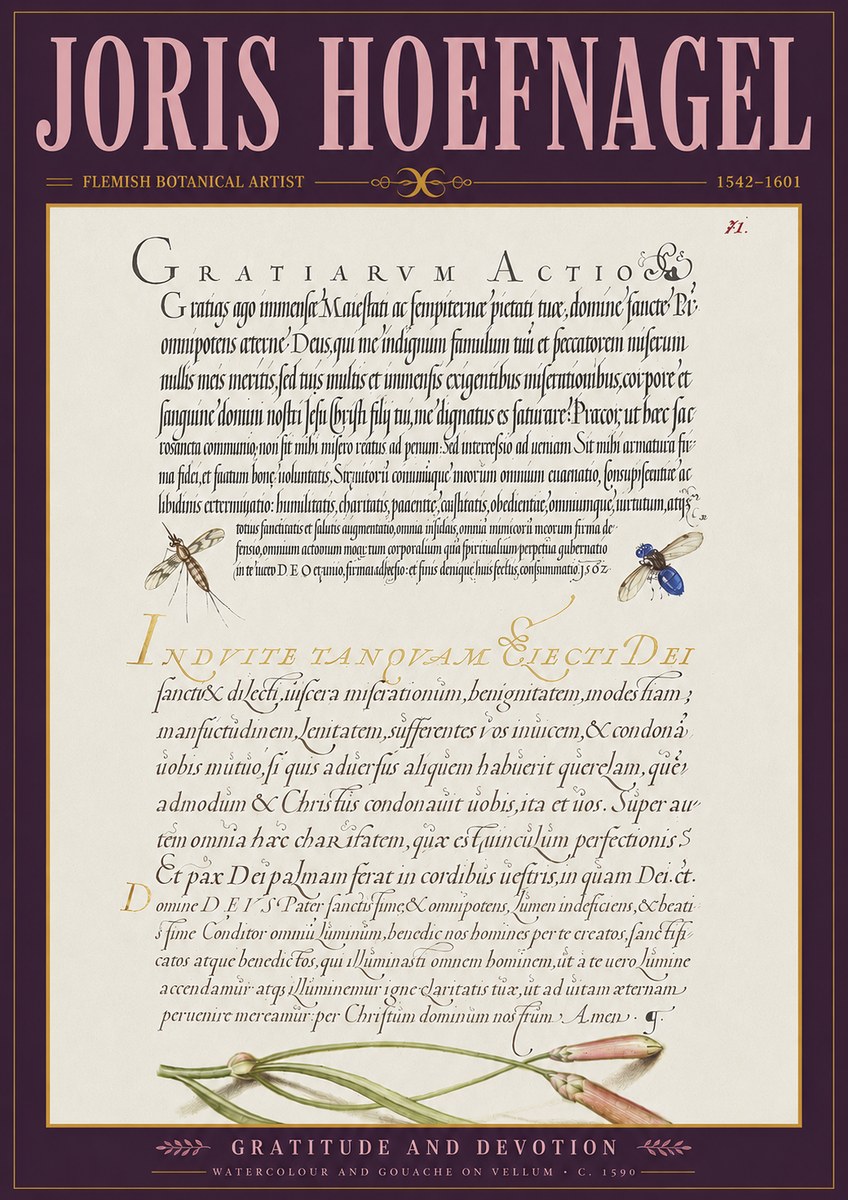 JORIS HOEFNAGEL
FLEMISH BOTANICAL ARTIST
1542–1601
71.
GRATIARVM ACTIO
Gratias ago immensæ Maiestati ac sempiternæ pietati tuæ, domine sancte
omnipotens æterne Deus, qui me indignum famulum tuū et peccatorem miserum
nullis meis meritis, sed tuis multis et immensis exigentibus miserationibus, corpore et
sanguine domini nostri Jesu Christi filij tui, me dignatus es saturare: Præcor, ut hæc sac
rosancta communio, non sit mihi misero reatus ad penam: Sed intercessio ad veniam Sit mihi armatura fir-
ma fidei, et bonæ voluntatis, omnium
libidinis humilitatis, charitatis, castitatis, obedientiæ, omniumque,
totius sanctitatis et salutis augmentatio, omnia omnia meorum firma de-
fensio, omnium corporalium spiritualium perpetua gubernatio
in te vero DEO et finis denique huis 1562
INDVITE TANQVAM ELECTI DEI
sancti & dilecti, uiscera miserationum, benignitatem, modestiam;
mansuetudinem, Lenitatem, sufferentes vos inuicem, & condonā
uobis mutuo, si quis aduersus aliquem habuerit querelam, quē,
admodum & Christus condonauit uobis, ita et uos. Super au-
tem omnia hæc charitatem, quæ est uinculum perfectionis
Et pax Dei palmam ferat in cordibus uestris, in quam Dei. ct.
Domine DEVS Pater sanctissime, & omnipotens, Lumen indeficiens, & beati-
ssime Conditor omniū Luminum, benedic nos homines per te creatos, sanctifi-
catos atque benedictos, qui illuminasti omnem hominem, ut a te uero Lumine
accendamur atqs illuminemur igne claritatis tuæ, ut ad uitam æternam
peruenire mereamur: per Christum dominum nostrum. Amen. g.
GRATITUDE AND DEVOTION
WATERCOLOUR AND GOUACHE ON VELLUM • C. 1590